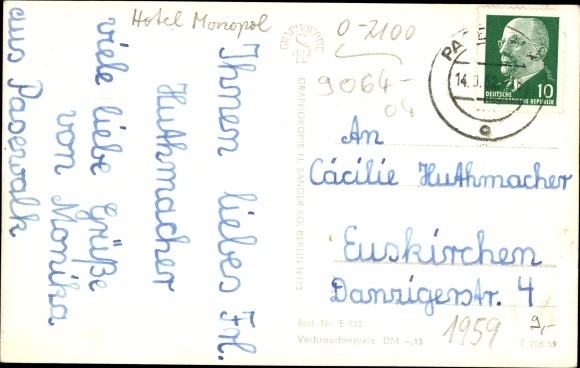 Hotel Monopol
Ihnen liebes Frl.
Huthmacher
viele liebe Grüße
von Monika
aus Pasewalk
0-2100
9064-
04
GRAPHOKOPIE
GRAPHOKOPIE H. SANDER KG, BERLIN N 113
14.
DEUTSCHE
DEMOKRATISCHE REPUBLIK
10
An
Cäcilie Huthmacher
Euskirchen
Danzigerstr. 4
Best.-Nr. E 122
Verbraucherpreis DM -,15
1959
9,-